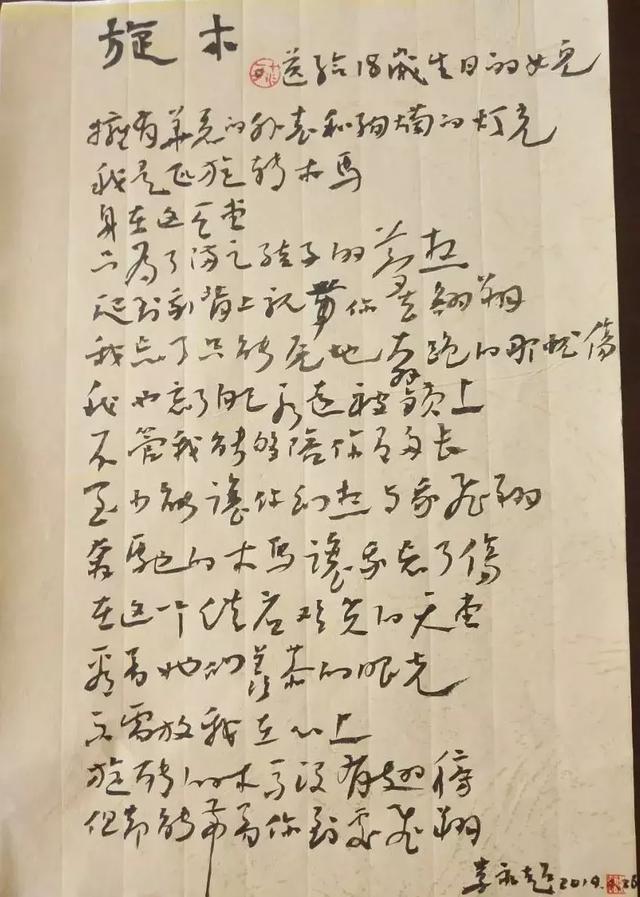 旋木
送给18歲生日的女兒
擁有華麗的外表和绚爛的灯光
我是匹旋转木馬
身在这天堂
只為了满足孩子的梦想
爬到我背上就带你去翱翔
我忘了只能原地奔跑的那憂傷
我也忘了自己永远被鎖上
不管我能够陪你有多长
至少能讓你幻想与我飛翔
奔馳的木馬讓我忘了傷
在这个供应欢笑的天堂
看着她们羡慕的眼光
只需放我在心上
旋转的木馬没有翅膀
但却能带着你到处飛翔
2019.